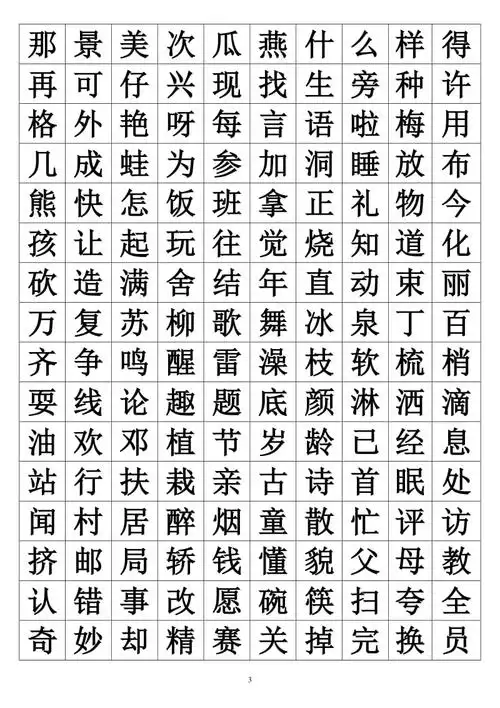 那 景 美 次 瓜 燕 什 么 样 得
再 可 仔 兴 现 找 生 旁 种 许
格 外 艳 呀 每 言 语 啦 梅 用
几 成 蛙 为 参 加 洞 睡 放 布
熊 快 怎 饭 班 拿 正 礼 物 今
孩 让 起 玩 往 觉 烧 知 道 化
砍 造 满 舍 结 年 直 动 束 丽
万 复 苏 柳 歌 舞 冰 泉 丁 百
齐 争 鸣 醒 雷 澡 枝 软 梳 梢
耍 线 论 趣 题 底 颜 淋 洒 滴
油 欢 邓 植 节 岁 龄 已 经 息
站 行 扶 栽 亲 古 诗 首 眠 处
闻 村 居 醉 烟 童 散 忙 评 访
挤 邮 局 轿 钱 懂 貌 父 母 教
认 错 事 改 愿 碗 筷 扫 夸 全
奇 妙 却 精 赛 关 掉 完 换 员
3